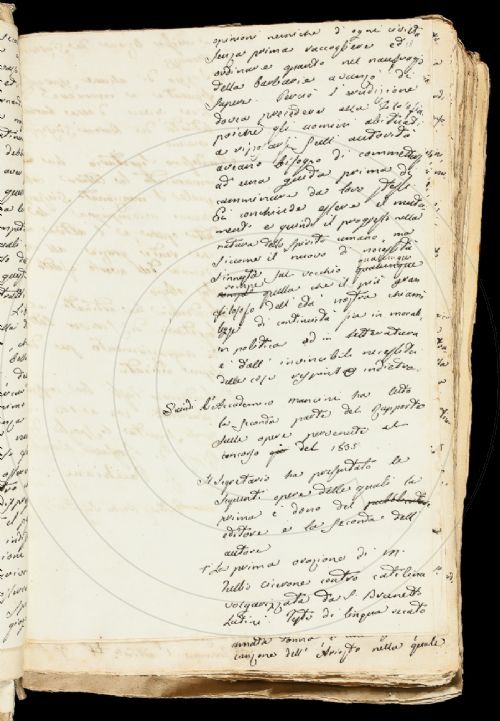 opinioni nemiche d'ogni civiltà
senza prima raccogliere ed
ordinare quanto nel naufragio
della barbarie avanzò di
sapere. Perciò l'erudizione
dovea precedere alla filosofia
poichè gli uomini abituati
a riposarsi sull'autorità
aveano bisogno di commettersi
ad una guida prima di
camminare da loro stessi
Ei conchiude essere il
e quindi il progresso nella
natura dello spirito umano, ma
siccome il nuovo di necessità
s'innesta sul vecchio qualunque
quella che il più gran
filosofo dell'età nostra chiamò
legge di continuità sia in morale,
in politica ed in letteratura
è dall'invincibile necessità
delle cose respinto indietro.
Quindi l'Accademico Mancini ha letto
la seconda parte del Rapporto
sulle opere pervenute al
concorso del 1835
Il Segretario ha presentato le
seguenti opere delle quali la
prima è dono del
editore e la seconda dell'
autore
1. La prima orazione di M.
Tullio Cicerone contro Catilina
volgarizzata da S. Brunetto
Latini Testo di lingua recato
canzone dell'Ariosto nella quale